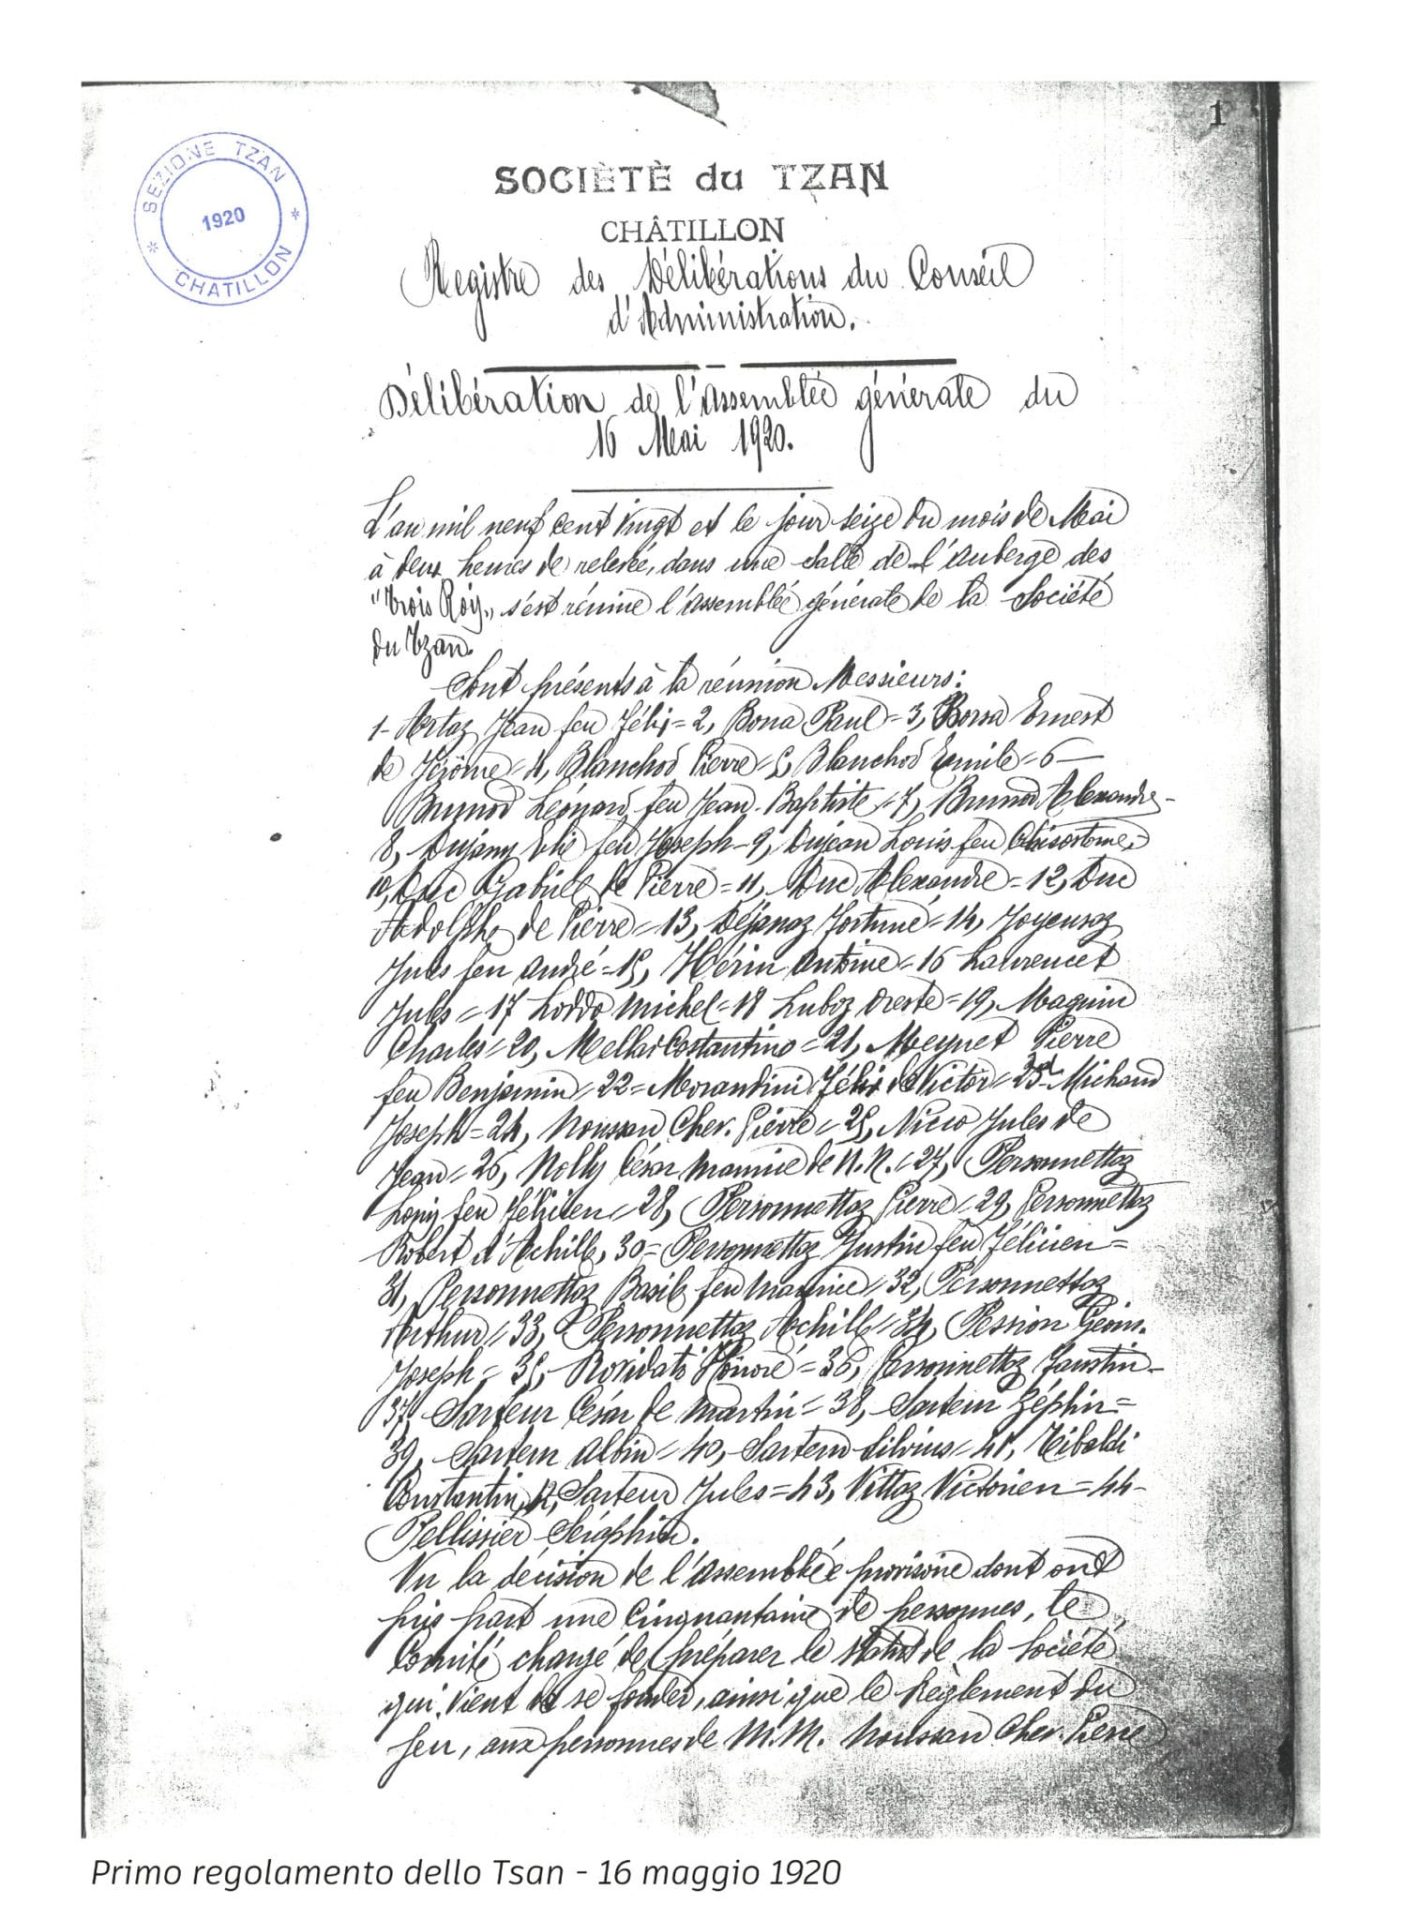 1
SEZIONE TZAN
1920
CHATILLON
SOCIÈTÈ du TZAN
CHÂTILLON
Registre des Délibérations du Conseil
d'Administration.
Délibération de l'Assemblée générale du
16 Mai 1920.
L'an mil neuf cent vingt et le jour seize du mois de Mai
à deux heures de relevée, dans une salle de l'auberge des
"Trois Roy", s'est réunie l'assemblée générale de la Société
du Tzan.
Sont présents à la réunion Messieurs:
1- Artaz Jean feu Félix = 2, Bona Paul = 3, Borra Ernest
de Jérôme = 4, Blanchod Pierre = 5, Blanchod Emile = 6 -
Brunod Léonard feu Jean-Baptiste = 7, Brunod Alexandre -
8, Dujany Elie feu Joseph - 9, Dujean Louis feu =
10, Duc Gabriel de Pierre = 11, Duc Alexandre = 12, Duc
Adolphe de Pierre = 13, Déjanaz Fortuné = 14, Joyeusaz
Jules feu André = 15, Hérin Antoine = 16 Laurencet
Jules = 17 Loddo Michel = 18 Luboz Oreste = 19, Maquin
Charles = 20, Costantino = 21, Meynet Pierre
feu Benjamin = 22 = Morandini Félix de Victor = 23 - Michaud
Joseph = 24, Noussan Cher. Pierre = 25, Nicco Jules de
Jean = 26, Nolly César Maurice de N.N. = 27, Personnettaz
Louis feu Félicien = 28, Personnettaz Pierre = 29, Personnettaz
Robert d'Achille, 30 = Personnettaz Justin feu Félicien =
31, Personnettaz Basile feu Maurice = 32, Personnettaz
Arthur = 33, Personnettaz Achille = 34, Pession
Joseph = 35, Honoré = 36, Personnettaz Faustin -
37, Sarteur César de Martin = 38, Sarteur Zéphin =
39, Sarteur Albin = 40, Sarteur Silvius = 41, Tibaldi
Constantin, 42, Sarteur Jules = 43, Vittaz Victorien = 44 -
Pellissier Séraphin.
Vu la décision de l'assemblée provisoire dont ont
pris part une cinquantaine de personnes, le
Comité chargé de préparer le statut de la Société
qui vient de se fonder, ainsi que le Règlement du
jeu, aux personnes de M.M. Noussan Cher. Pierre
Primo regolamento dello Tsan - 16 maggio 1920